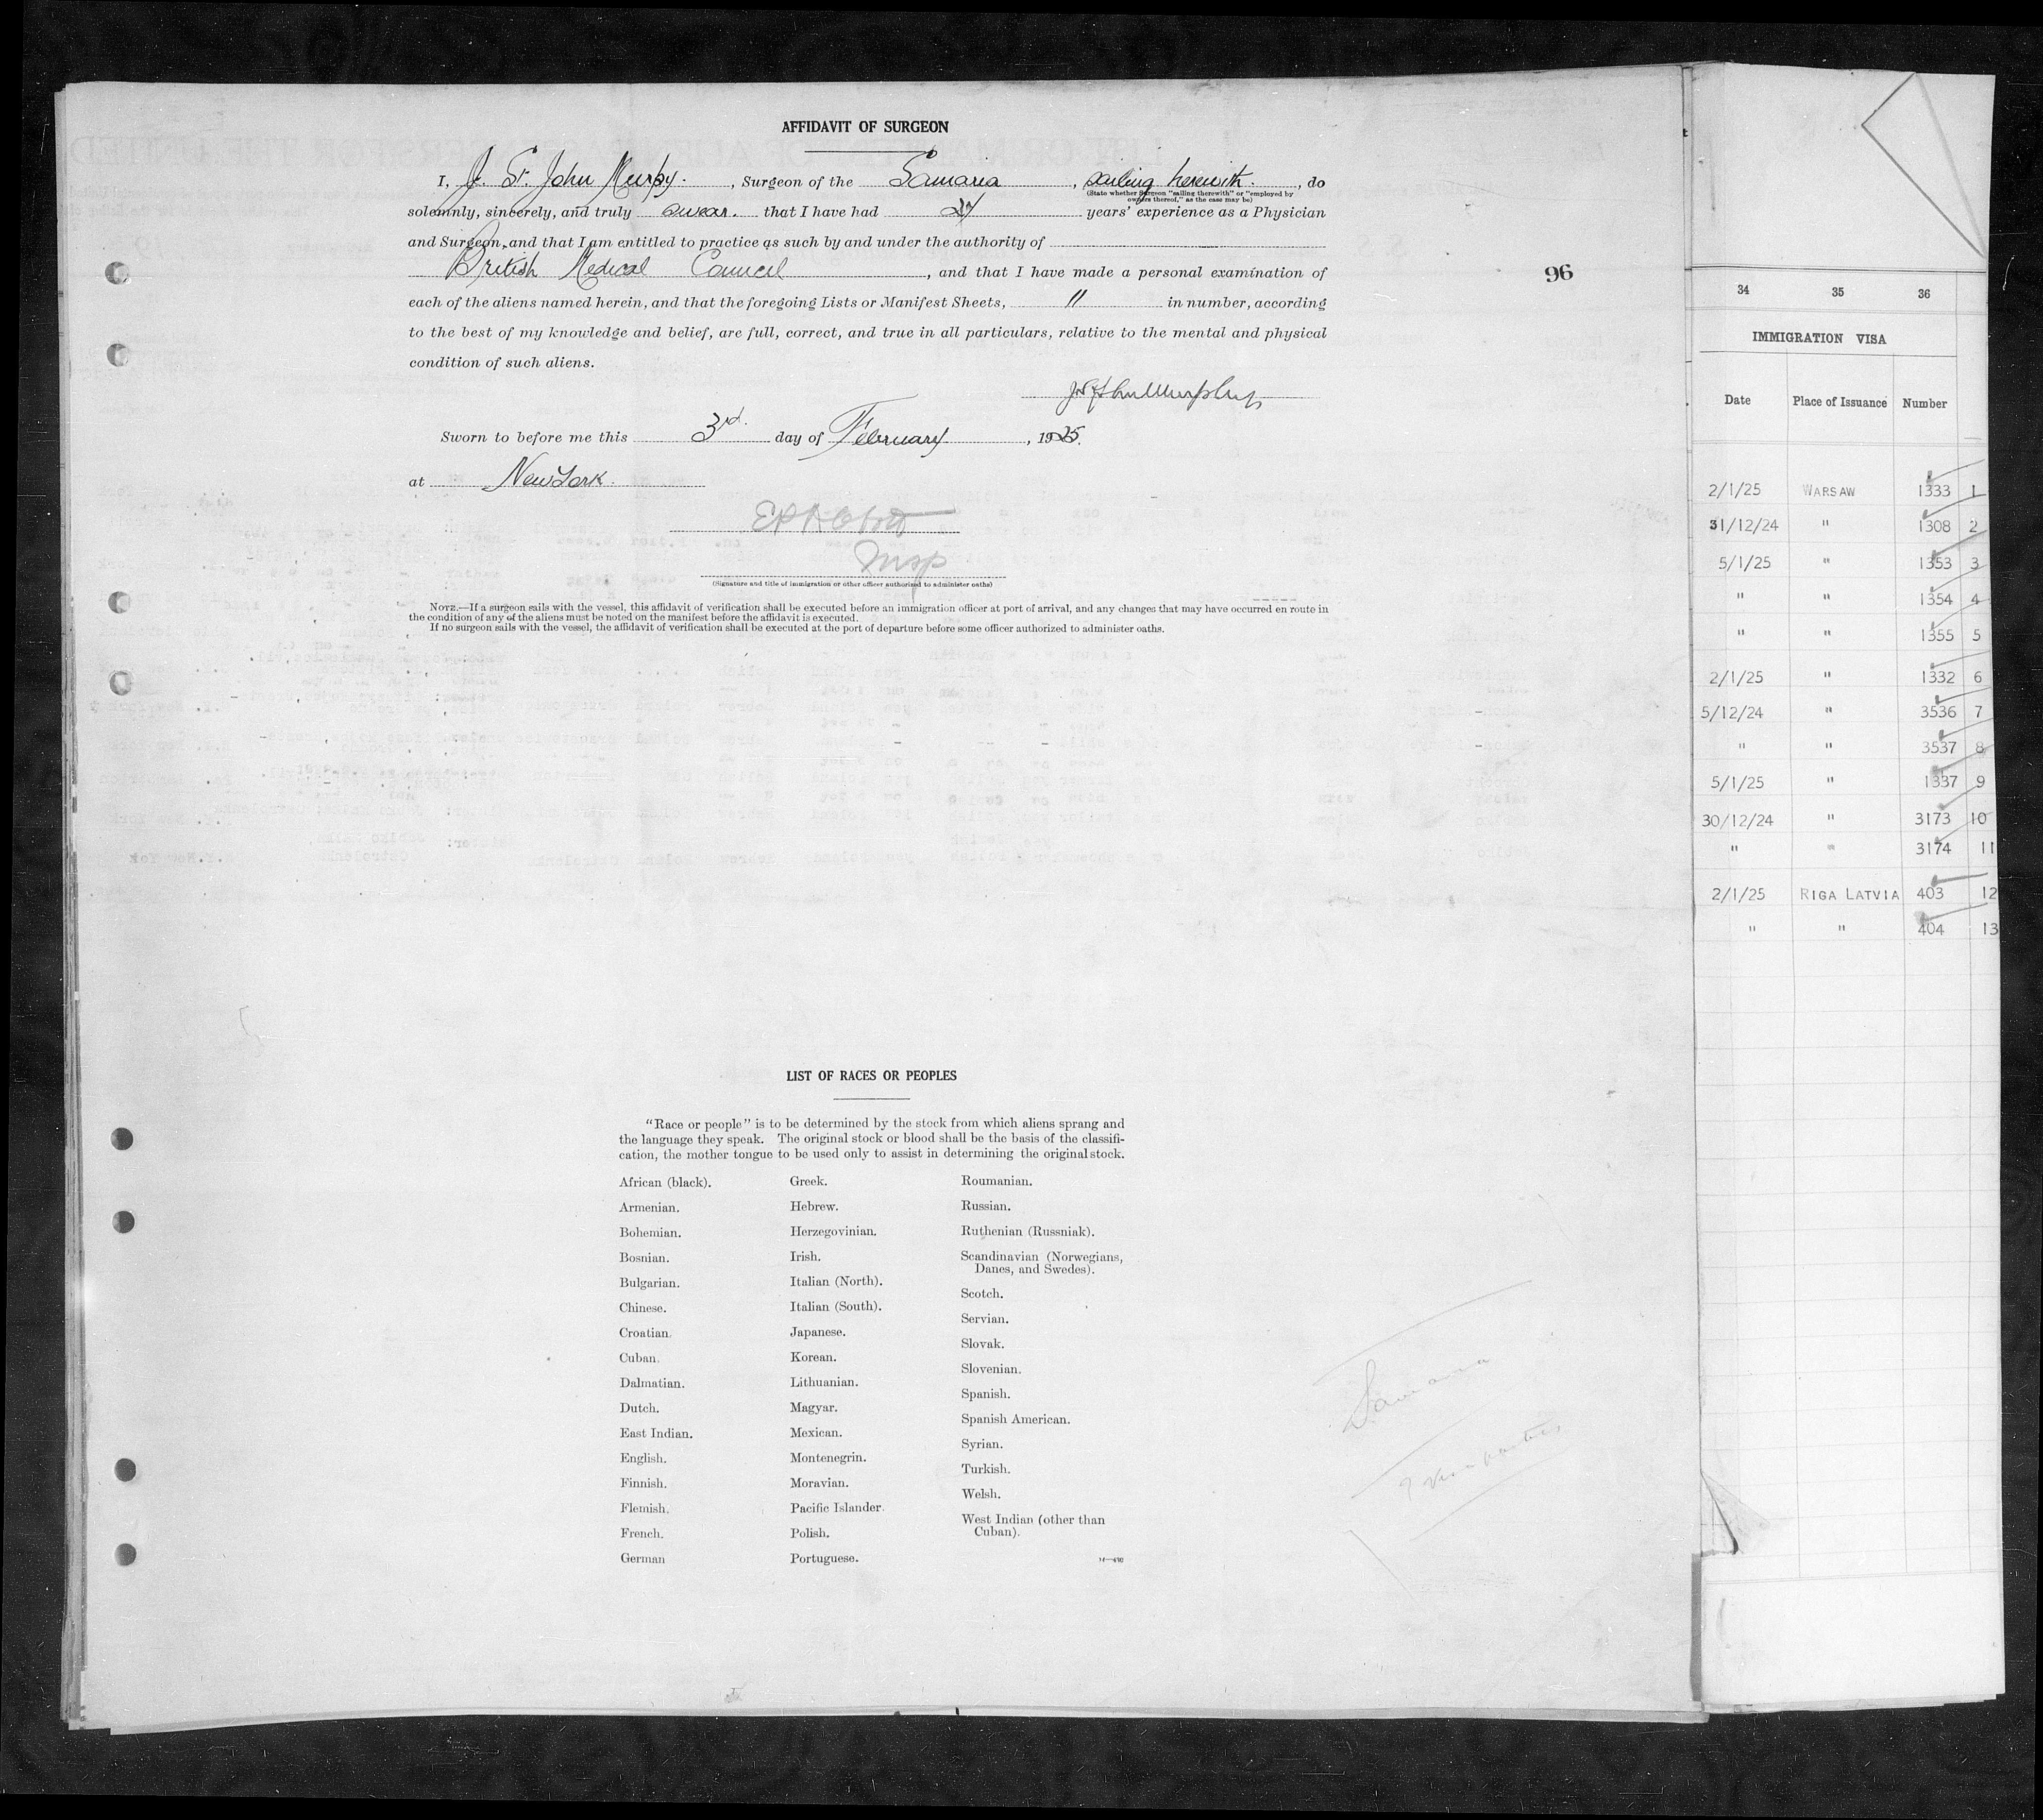 AFFIDAVIT OF SURGEON
I, J. St. John Murphy. , Surgeon of the Samaria , sailing herewith. , do
(State whether Surgeon "sailing therewith" or "employed by
owners thereof," as the case may be)
solemnly, sincerely, and truly swear. that I have had years' experience as a Physician
and Surgeon, and that I am entitled to practice as such by and under the authority of
British Medical Council , and that I have made a personal examination of
each of the aliens named herein, and that the foregoing Lists or Manifest Sheets, 11 in number, according
to the best of my knowledge and belief, are full, correct, and true in all particulars, relative to the mental and physical
condition of such aliens.
J St John Murphy
Sworn to before me this 3rd. day of February , 1925.
at New York.
Insp
(Signature and title of immigration or other officer authorized to administer oaths)
NOTE.—If a surgeon sails with the vessel, this affidavit of verification shall be executed before an immigration officer at port of arrival, and any changes that may have occurred en route in
the condition of any of the aliens must be noted on the manifest before the affidavit is executed.
If no surgeon sails with the vessel, the affidavit of verification shall be executed at the port of departure before some officer authorized to administer oaths.
96
LIST OF RACES OR PEOPLES
"Race or people" is to be determined by the stock from which aliens sprang and
the language they speak. The original stock or blood shall be the basis of the classifi-
cation, the mother tongue to be used only to assist in determining the original stock.
African (black).
Armenian.
Bohemian.
Bosnian.
Bulgarian.
Chinese.
Croatian.
Cuban.
Dalmatian.
Dutch.
East Indian.
English.
Finnish.
Flemish.
French.
German
Greek.
Hebrew.
Herzegovinian.
Irish.
Italian (North).
Italian (South).
Japanese.
Korean.
Lithuanian.
Magyar.
Mexican.
Montenegrin.
Moravian.
Pacific Islander.
Polish.
Portuguese.
Roumanian.
Russian.
Ruthenian (Russniak).
Scandinavian (Norwegians,
Danes, and Swedes).
Scotch.
Servian.
Slovak.
Slovenian.
Spanish.
Spanish American.
Syrian.
Turkish.
Welsh.
West Indian (other than
Cuban).
Samaria
34 35 36
IMMIGRATION VISA
Date Place of Issuance Number
2/1/25 WARSAW 1333 1
31/12/24 " 1308 2
5/1/25 " 1353 3
" " 1354 4
" " 1355 5
2/1/25 " 1332 6
5/12/24 " 3536 7
" " 3537 8
5/1/25 " 1337 9
30/12/24 " 3173 10
" " 3174 11
2/1/25 RIGA LATVIA 403 12
" " 404 13